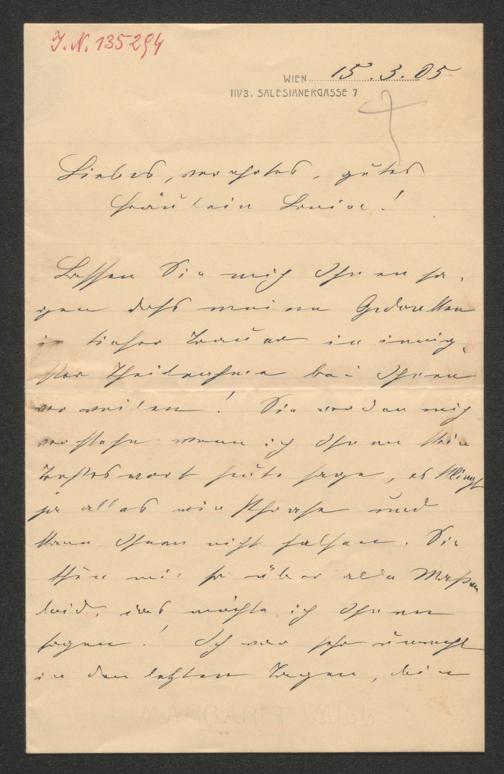 J. N. 135294
WIEN 15.3.05
III/3. SALESIANERGASSE 7
Liebes, verehrtes, gutes
Fräulein Louise!
Lassen Sie mich Ihnen sa-
gen daß meine Gedanken
in tiefer Trauer in innig-
ster Theilnahme bei Ihnen
verweilen! Sie werden mich
verstehn wenn ich Ihnen kein
Trosteswort heute sage, es klingt
ja alles wie Phrase und
kann Ihnen nicht helfen. Sie
thun mir so über alle Maßen
leid, das möchte ich Ihnen
sagen! Ich war sehr unwohl
in den letzten Tagen, bin